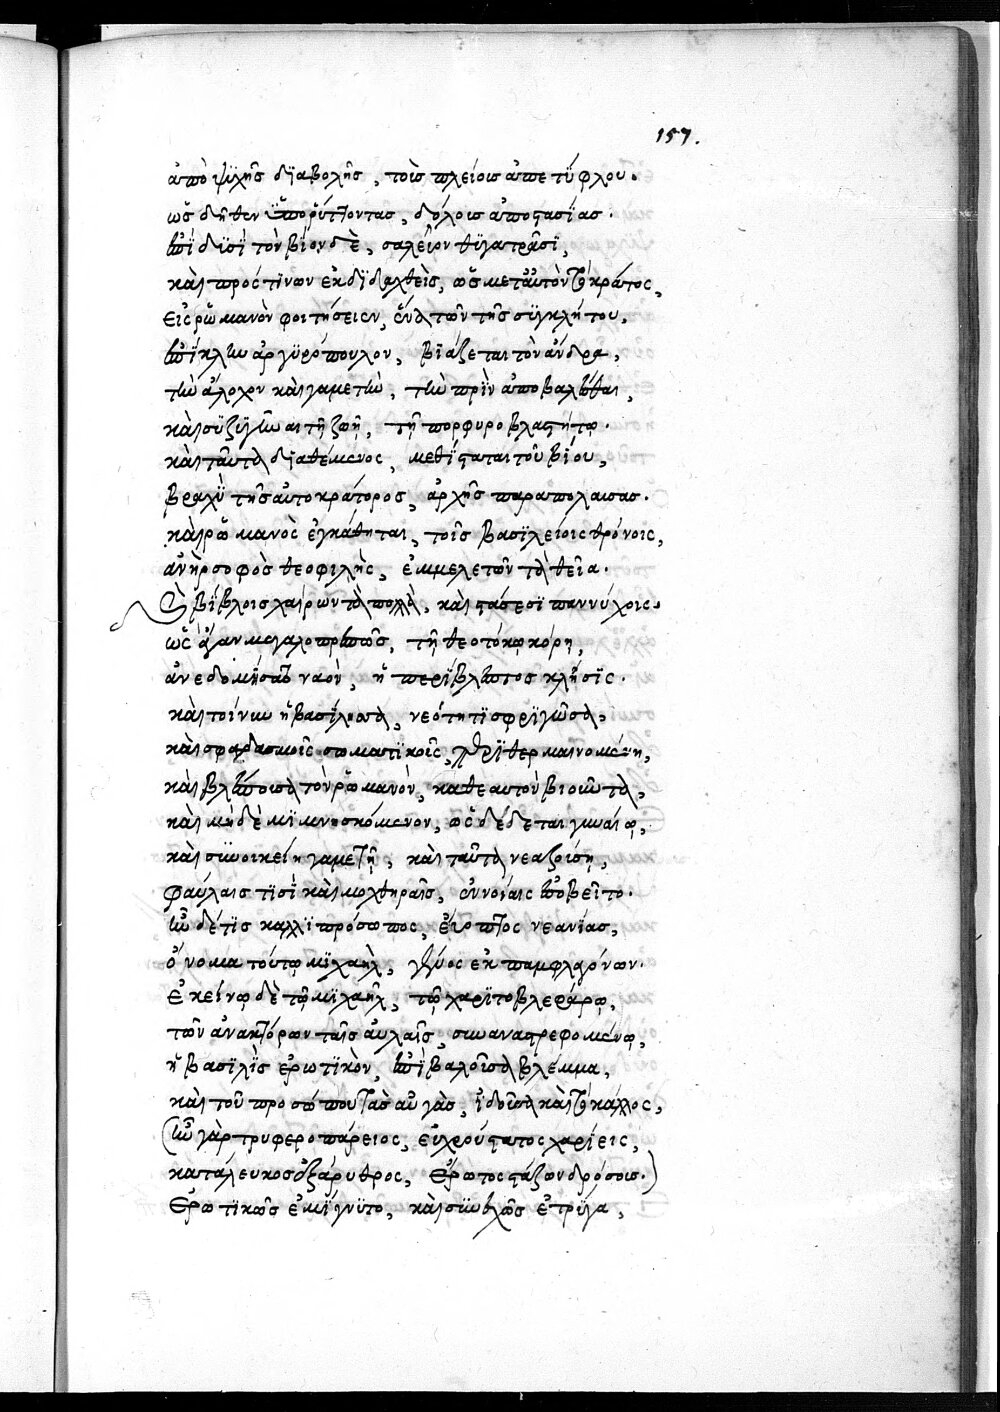 157.
ἀπὸ ψιχῆς διαβολῆς, τοὶς πλείοις ἀπετύφλου.
ὡς δῆθεν ὑπορύττοντας, δόλοις ἀποστασίας.
ἐπὶ δισὶ τὸν βίον δὲ, σαλεῖον θιγατράσι,
καὶ πρός τινων ἐκδιδαχθεὶς, ὡς μετ αὐτὸν τὸ κράτος,
εἰς ῥωμανὸν φοιτήσειεν, ἕνα τῶν τῆς συγκλήτου,
ἐπίκλην ἀργυρόπουλον, βιάζεται τὸν ἄνδρα,
τὴν ἄλοχον καὶ γαμετὴν, τὴν πρὶν ἀποβαλέσθαι,
καὶ συζυγῆναι τῇ ζωῇ, τῇ πορφυροβλαστήτῳ.
καὶ ταῦτα διαθέμενος, μεθίσταται τοῦ βίου,
βραχὺ τῆς αὐτοκράτορος, ἀρχῆς παραπολαύσας.
καὶ ῥωμανὸς ἐγκάθηται, τοῖς βασιλείοις θρόνοις,
ἀνὴρ σοφὸς θεοφιλὴς, ἐμμελετῶν τὰ θεῖα.
βίβλοις χαίρων τὰ πολλὰ, καὶ στάσεσι παννύχοις.
ὡς ἄγαν μεγαλοπρεπῶς, τῇ θεοτόκῳ κόρῃ,
ἀνεδομήσατο ναὸν, ἡ περίβλεπτος κλῆσις.
καὶ τοίνυν ἡ βασίλισσα, νεότητι σφριγῶσα,
καὶ σφαδασμοῖς σωματικοῖς, περιθερμαινομένη,
καὶ βλέπουσα τὸν ῥωμανὸν, καθεαυτὸν βιοῦντα,
καὶ μηδὲ μιμνησκόμενον, ὡς δέδεται γυναίῳ,
καὶ συνοικείη γαμετῇ, καὶ ταῦτα νεαζούση,
φαύλαις τισὶ καὶ μοχθηραῖς, ἐννοίαις ἐπεβεῖτο.
ἦν δέ τις καλλιπρόσωπος, εὐρύπτος νεανίας,
ὄνομα τούτῳ μιχαὴλ, γένος ἐκ παμφλαγόνων.
ἐκείνῳ δὲ τῷ μιχαὴλ, τῷ χαριτοβλεφάρῳ,
τῶν ἀνακτόρων ταῖς αὐλαῖς, συναναστρεφομένῳ,
ἡ βασιλὶς ἐρωτικὸν, ἐπιβαλοῦσα βλέμμα,
καὶ τοῦ προσώπου τὰς αὐγὰς, ἰδοῦσα καὶ τὸ κάλλος,
(ἦν γὰρ τρυφεροπάρειος, εὐχρούστατος χαρίεις,
κατάλευκος ἐξάρυθρος, ἔρωτος στάζων δρόσους.)
ἐρωτικῶς ἐμίγνυτο, καὶ συχνῶς ἐτρύγα,